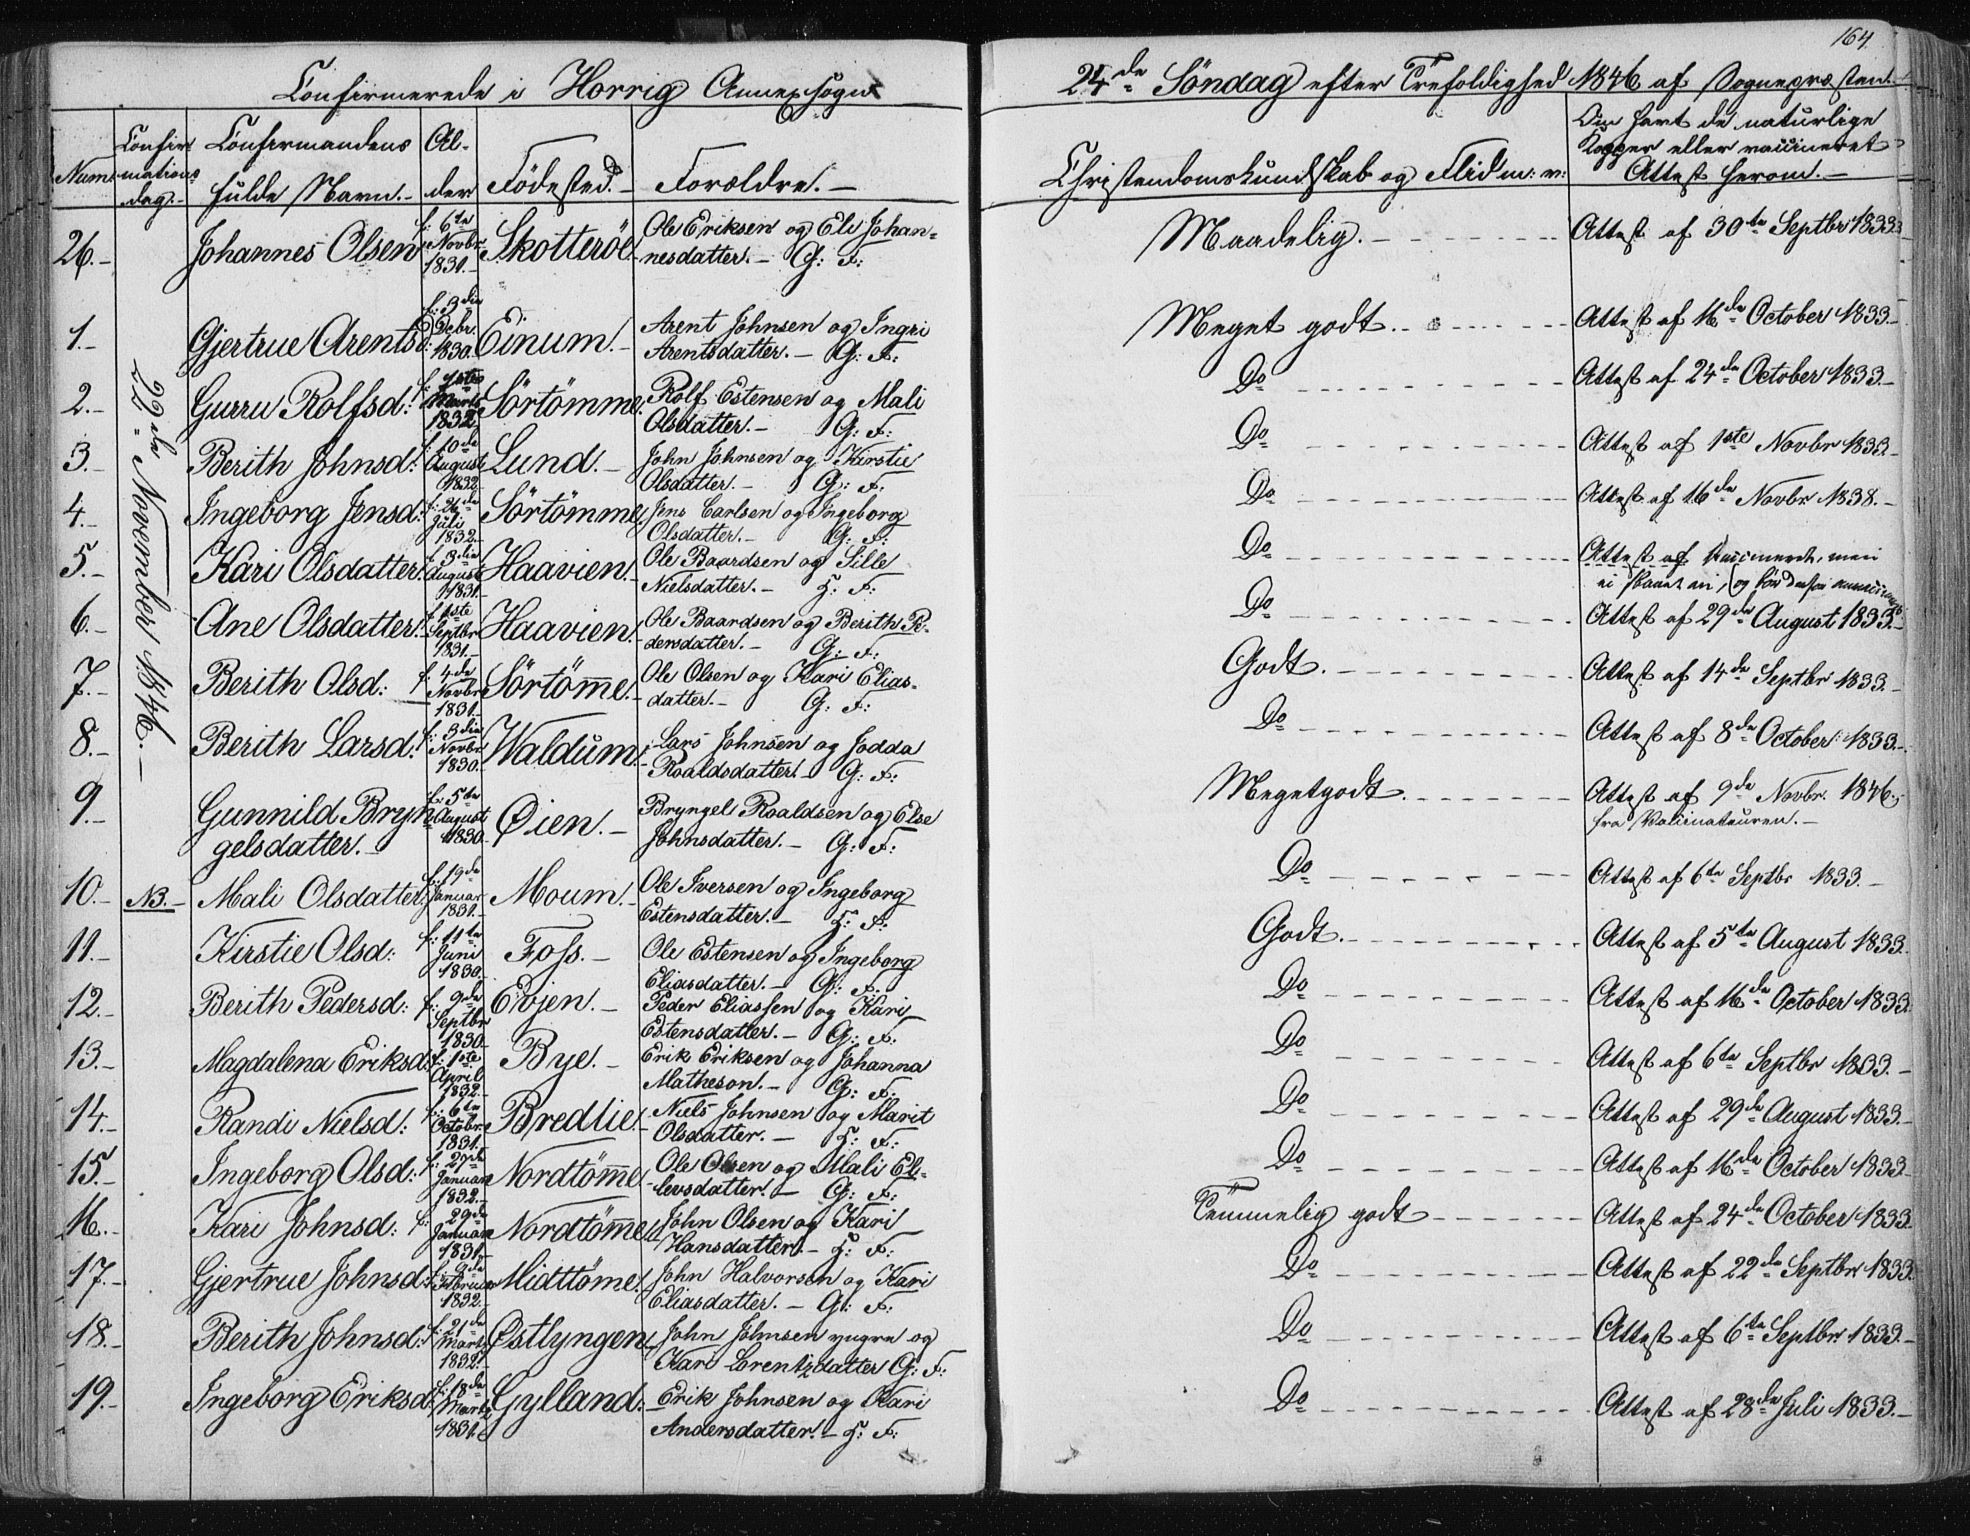 164.
Confirmerede i Horrig Annexsogn
24de Söndag efter Trefoldighed 1846 af Sognepræsten.
Num:
Confirmationsdag.-
Confirmandens fulde Navn.-
Alder
Födested.-
Forældre.-
Christendomskundskab og Flid m: v:
Om havt de naturlige
Kopper eller vaccineret
Attest herom.-
22de November 1846.-
26.- Johannes Olsen f: 6te Novbr. 1831.- Skotteröe.- Ole Eriksen og Eli Johannesdatter.- G: F: Maadelig.- Attest af 30te Septbr 1833
1.- Gjertrue Arentsd: f: 3die Debr. 1830.- Einum.- Arent Johnsen og Ingri Arentsdatter.- G: F: Meget godt. Attest af 16de October 1833.-
2.- Gurru Rolfsd: f: 1ste Marts 1832 Sörtömme. Rolf Estensen og Mali Olsdatter.- G: F: Do Attest af 24de October 1833.-
3.- Berith Johnsd: f: 10de August 1832 Lund.- John Johnsen og Kirstie Olsdatter.- G: F. Do Attest af 1ste Novbr 1833.-
4.- Ingeborg Jensd: f: 26de Juli 1832.- Sörtömme. Jens Carlsen og Ingeborg Olsdatter.- G: F: Do Attest af 16de Novbr 1838.-
5.- Kari Olsdatter. f. 3die August 1831.- Haavien.- Ole Baardsen og Sille Nielsdatter.- H: F: Do Attest af Vaccinerede, men
ei
6.- Ane Olsdatter. f. 1ste Septbr 1831.- Haavien. Ole Baardsen og Berith Pedersdatter.- G: F: Do Attest af 29de August 1833.-
7.- Berith Olsd: f. 4de Novbr 1831.- Sörtöm̅e.- Ole Olsen og Kari Eliasdatter.- G: F: Godt. Attest af 14de Septbr 1833.-
8.- Berith Larsd: f: 3die Novbr 1830.- Waldum. Lars Johnsen og Jodda Roaldsdatter.- G: F: Do Attest af 8de October 1833.-
9.- Gunnild Bryngelsdatter.- f: 5te August 1830.- Øien.- Bryngel Roaldsen og Else Johnsdatter.- G: F: Megetgodt. Attest af 9de Novbr. 1846,
fra Vaccinateuren.-
10.- NB.- Mali Olsdatter. f. 19de Januar 1831.- Moum.- Ole Iversen og Ingeborg Estensdatter.- H: F: Do Attest af 6te Septbr 1833.-
11.- Kirstie Olsd: f: 11te Juni 1830. Foss.- Ole Estensen og Ingeborg Eliasdatter.- G: F. Godt. Attest af 5te August 1833
12.- Berith Pedersd: f. 9de Septbr 1830 Evjen.- Peder Eliassen og Kari Estensdatter.- G: F: Do Attest af 16de October 1833
13.- Magdalena Eriksd: f: 1ste April 1832.- Bye.- Erik Eriksen og Johanna Matheson.- G: F: Do Attest af 6te Septbr 1833.-
14.- Randi Nielsd: f: 6te Octobr. 1831.- Bredlie. Niels Johnsen og Marit Olsdatter.- H: F: Do Attest af 29de August 1833.-
15.- Ingeborg Olsd: f: 27de Januar 1832.- Nordtöm̅e. Ole Olsen og Mali Ellevsdatter.- G: F: Do Attest af 16de October 1833
16.- Kari Johnsd: f: 29de Januar 1831.- Nordtöm̅e. John Olsen og Kari Hansdatter.- H: F: Temmelig godt Attest af 24de October 1833
17.- Gjertrue Johnsd: f: 9de Februar 1832.- Midttöme. John Halvorsen og Kari Eliasdatter.- G: F: Do Attest af 22de Septbr 1833
18.- Berith Johnsd: f: 21de Marts 1832.- Østlyngen. John Johnsen yngre og Kari Lorentzdatter G: F: Do Attest af 6te Septbr. 1833.-
19.- Ingeborg Eriksd. f: 18de Marts 1831. Gylland.- Erik Johnsen og Kari Andersdatter.- H: F: Do Attest af 28de Juli 1833.-